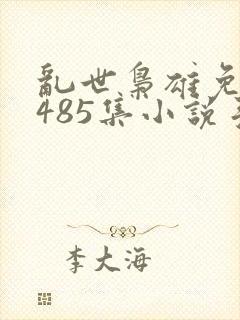 乱世梟雄免
485集小说
李大海